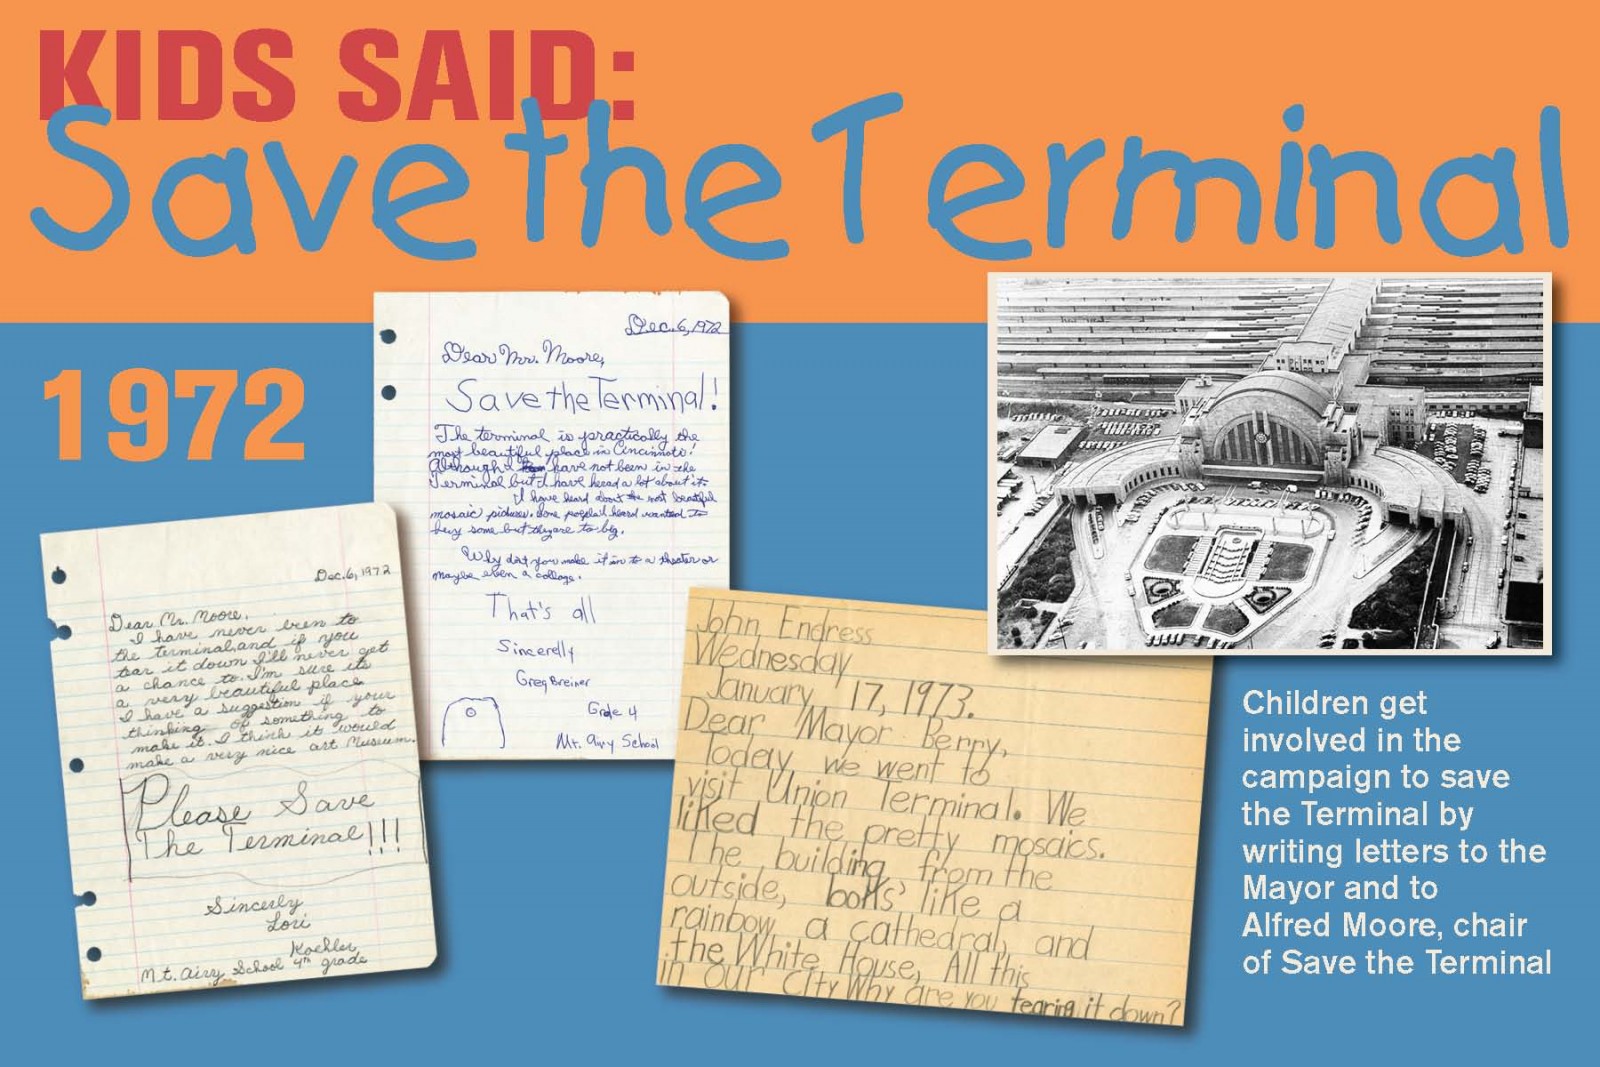 KIDS SAID:
Save the Terminal
1972
Dec. 6, 1972
Dear Mr. Moore,
Save the Terminal!
The terminal is practically the
most beautiful place in Cincinnati!
Although I have not been in the
Terminal but I have heard a lot about it.
I have heard about the most beatiful
mosaic pictures. Some people I heard wanted to
buy some but they are to big.
Why don't you make it in to a theater or
maybe even a collage.
That's all
Sincerelly
Greg Breiner
Grade 4
Mt. Airy School
Dec. 6, 1972
Dear Mr. Moore,
I have never been to
the terminal, and if you
tear it down I'll never get
a chance to. I'm sure its
a very beautiful place.
I have a suggestion if your
thinking of something to
make it. I think it would
make a very nice art Museum.
Please Save
The Terminal!!!
Sincerly
Lori
Koehler
Mt. Airy School 4th grade
John Endress
Wednesday
January 17, 1973.
Dear Mayor Berry,
Today we went to
visit Union Terminal. We
liked the pretty mosaics.
The building from the
outside, looks like a
rainbow, a cathedral, and
the White House, All this
in our City Why are you tearing it down?
Children get
involved in the
campaign to save
the Terminal by
writing letters to the
Mayor and to
Alfred Moore, chair
of Save the Terminal